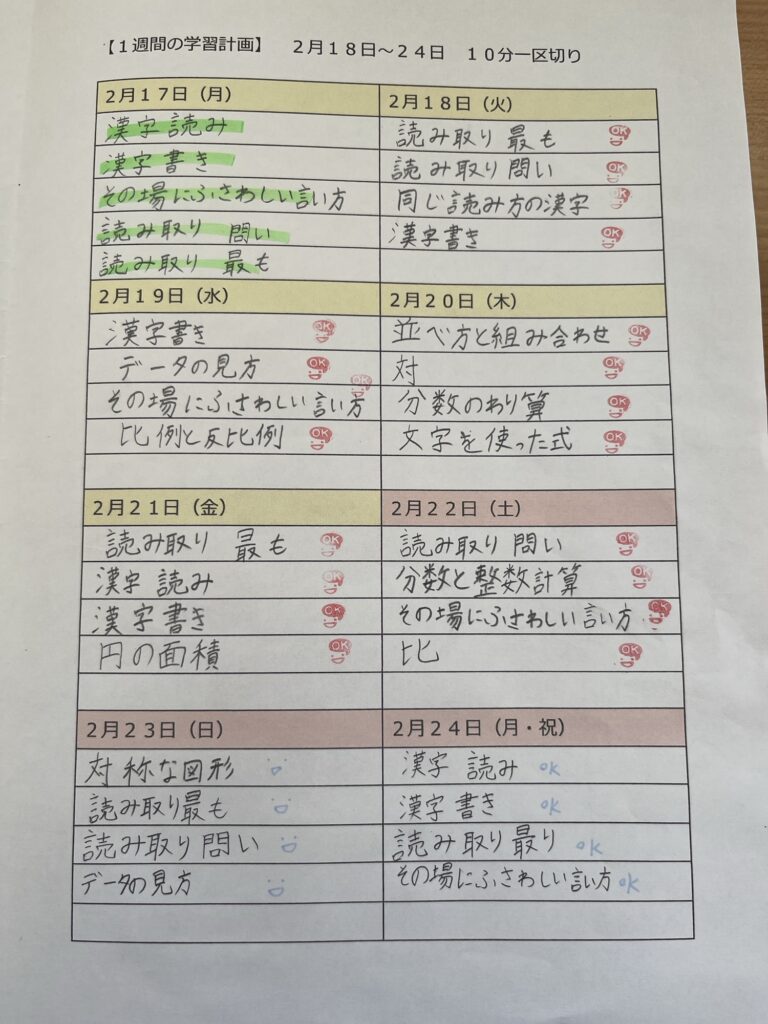 【１週間の学習計画】　２月１８日～２４日　１０分一区切り
２月１７日（月）
漢字 読み
漢字 書き
その場にふさわしい言い方
読み取り 問い
読み取り 最も
２月１８日（火）
読み取り 最も OK
読み取り 問い OK
同じ読み方の漢字 OK
漢字書き OK
２月１９日（水）
漢字書き OK
データの見方 OK
その場にふさわしい言い方 OK
比例と反比例 OK
２月２０日（木）
並べ方と組み合わせ OK
対 OK
分数のわり算 OK
文字を使った式 OK
２月２１日（金）
読み取り 最も OK
漢字 読み OK
漢字 書き OK
円の面積 OK
２月２２日（土）
読み取り 問い OK
分数と整数計算 OK
その場にふさわしい言い方 OK
比 OK
２月２３日（日）
対称な図形
読み取り最も
読み取り 問い
データの見方
２月２４日（月・祝）
漢字 読み OK
漢字 書き OK
読み取り 最り OK
その場にふさわしい言い方 OK